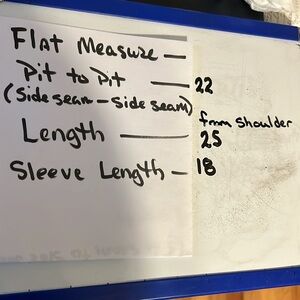 Flat Measure —
Pit to Pit — 22
(Side seam - Side seam)
from Shoulder
Length — 25
Sleeve Length — 18